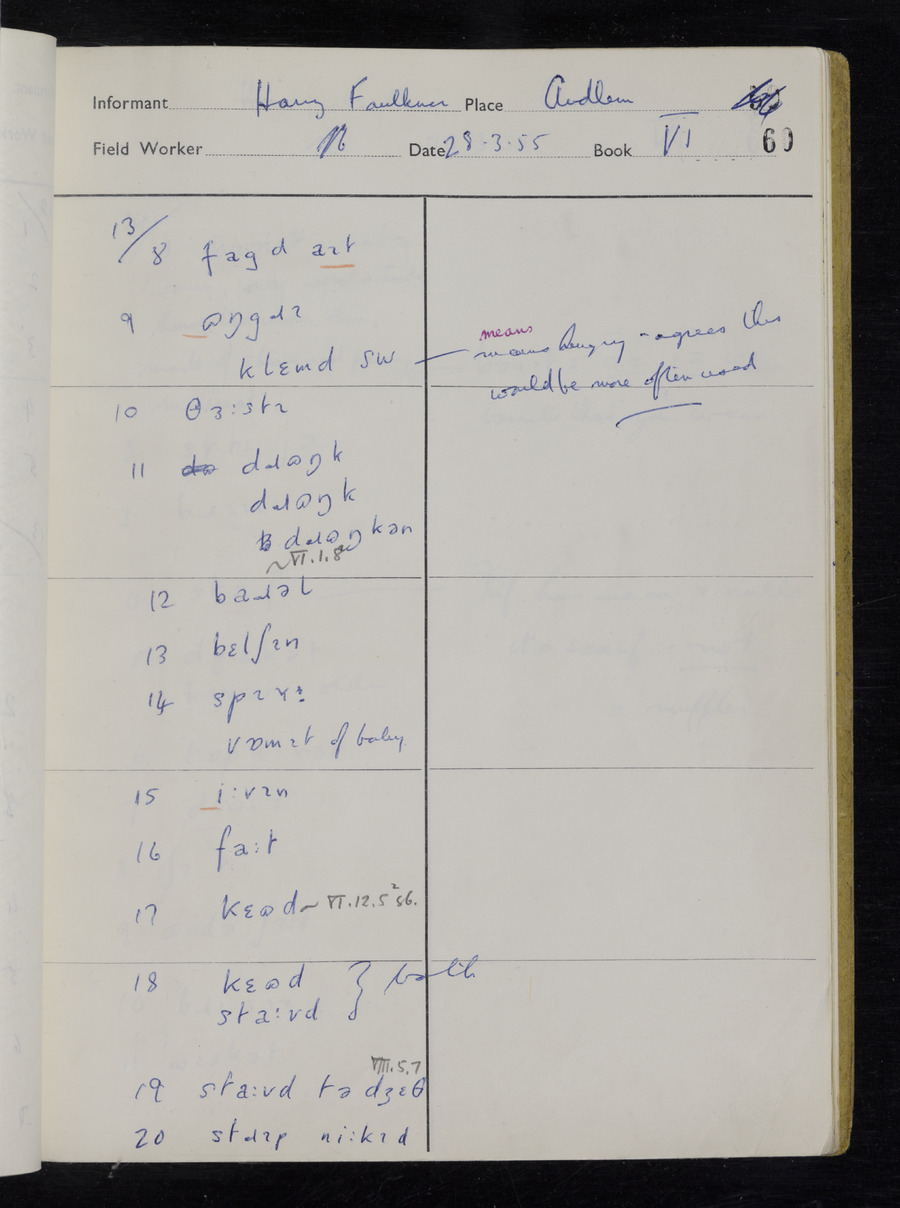 Informant Harry Faulkner Place Audlem
Field Worker Date 28.3.55 Book VI 60
13/8 fagd aɪt
9 ɷŋgəɹ
klɛmd sw — means
means hungry - agrees this
would be more often used
10 θɜ:stɪ
11 dɹɷŋk
dɹɷŋk
dɹɷŋkən
~VI.1.8
12 baɹəl
13 bɛlʃɪn
14 spɪu:
vɒmɪt of baby
15 i:vɪn
16 fa:t
17 kɛɷd ~ VI.12.5² s6.
18 kɛɷd } both
sta:vd
VIII.5.7
19 sta:vd tə dʒɛθ
20 stɹɪp ni:kɪd